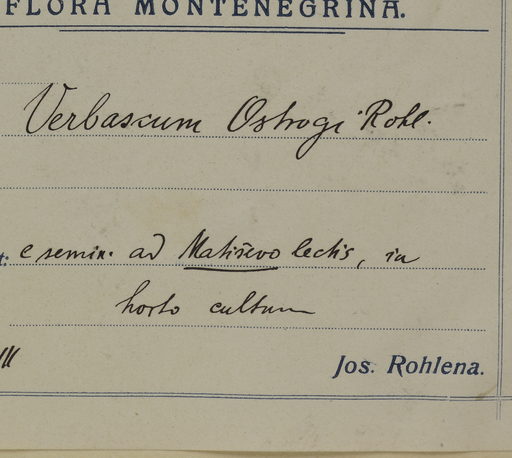 FLORA MONTENEGRINA.
Verbascum Ostrogi Rohl.
t. e semin. ad Matiševo lectis, in
horto cultum
III
Jos. Rohlena.